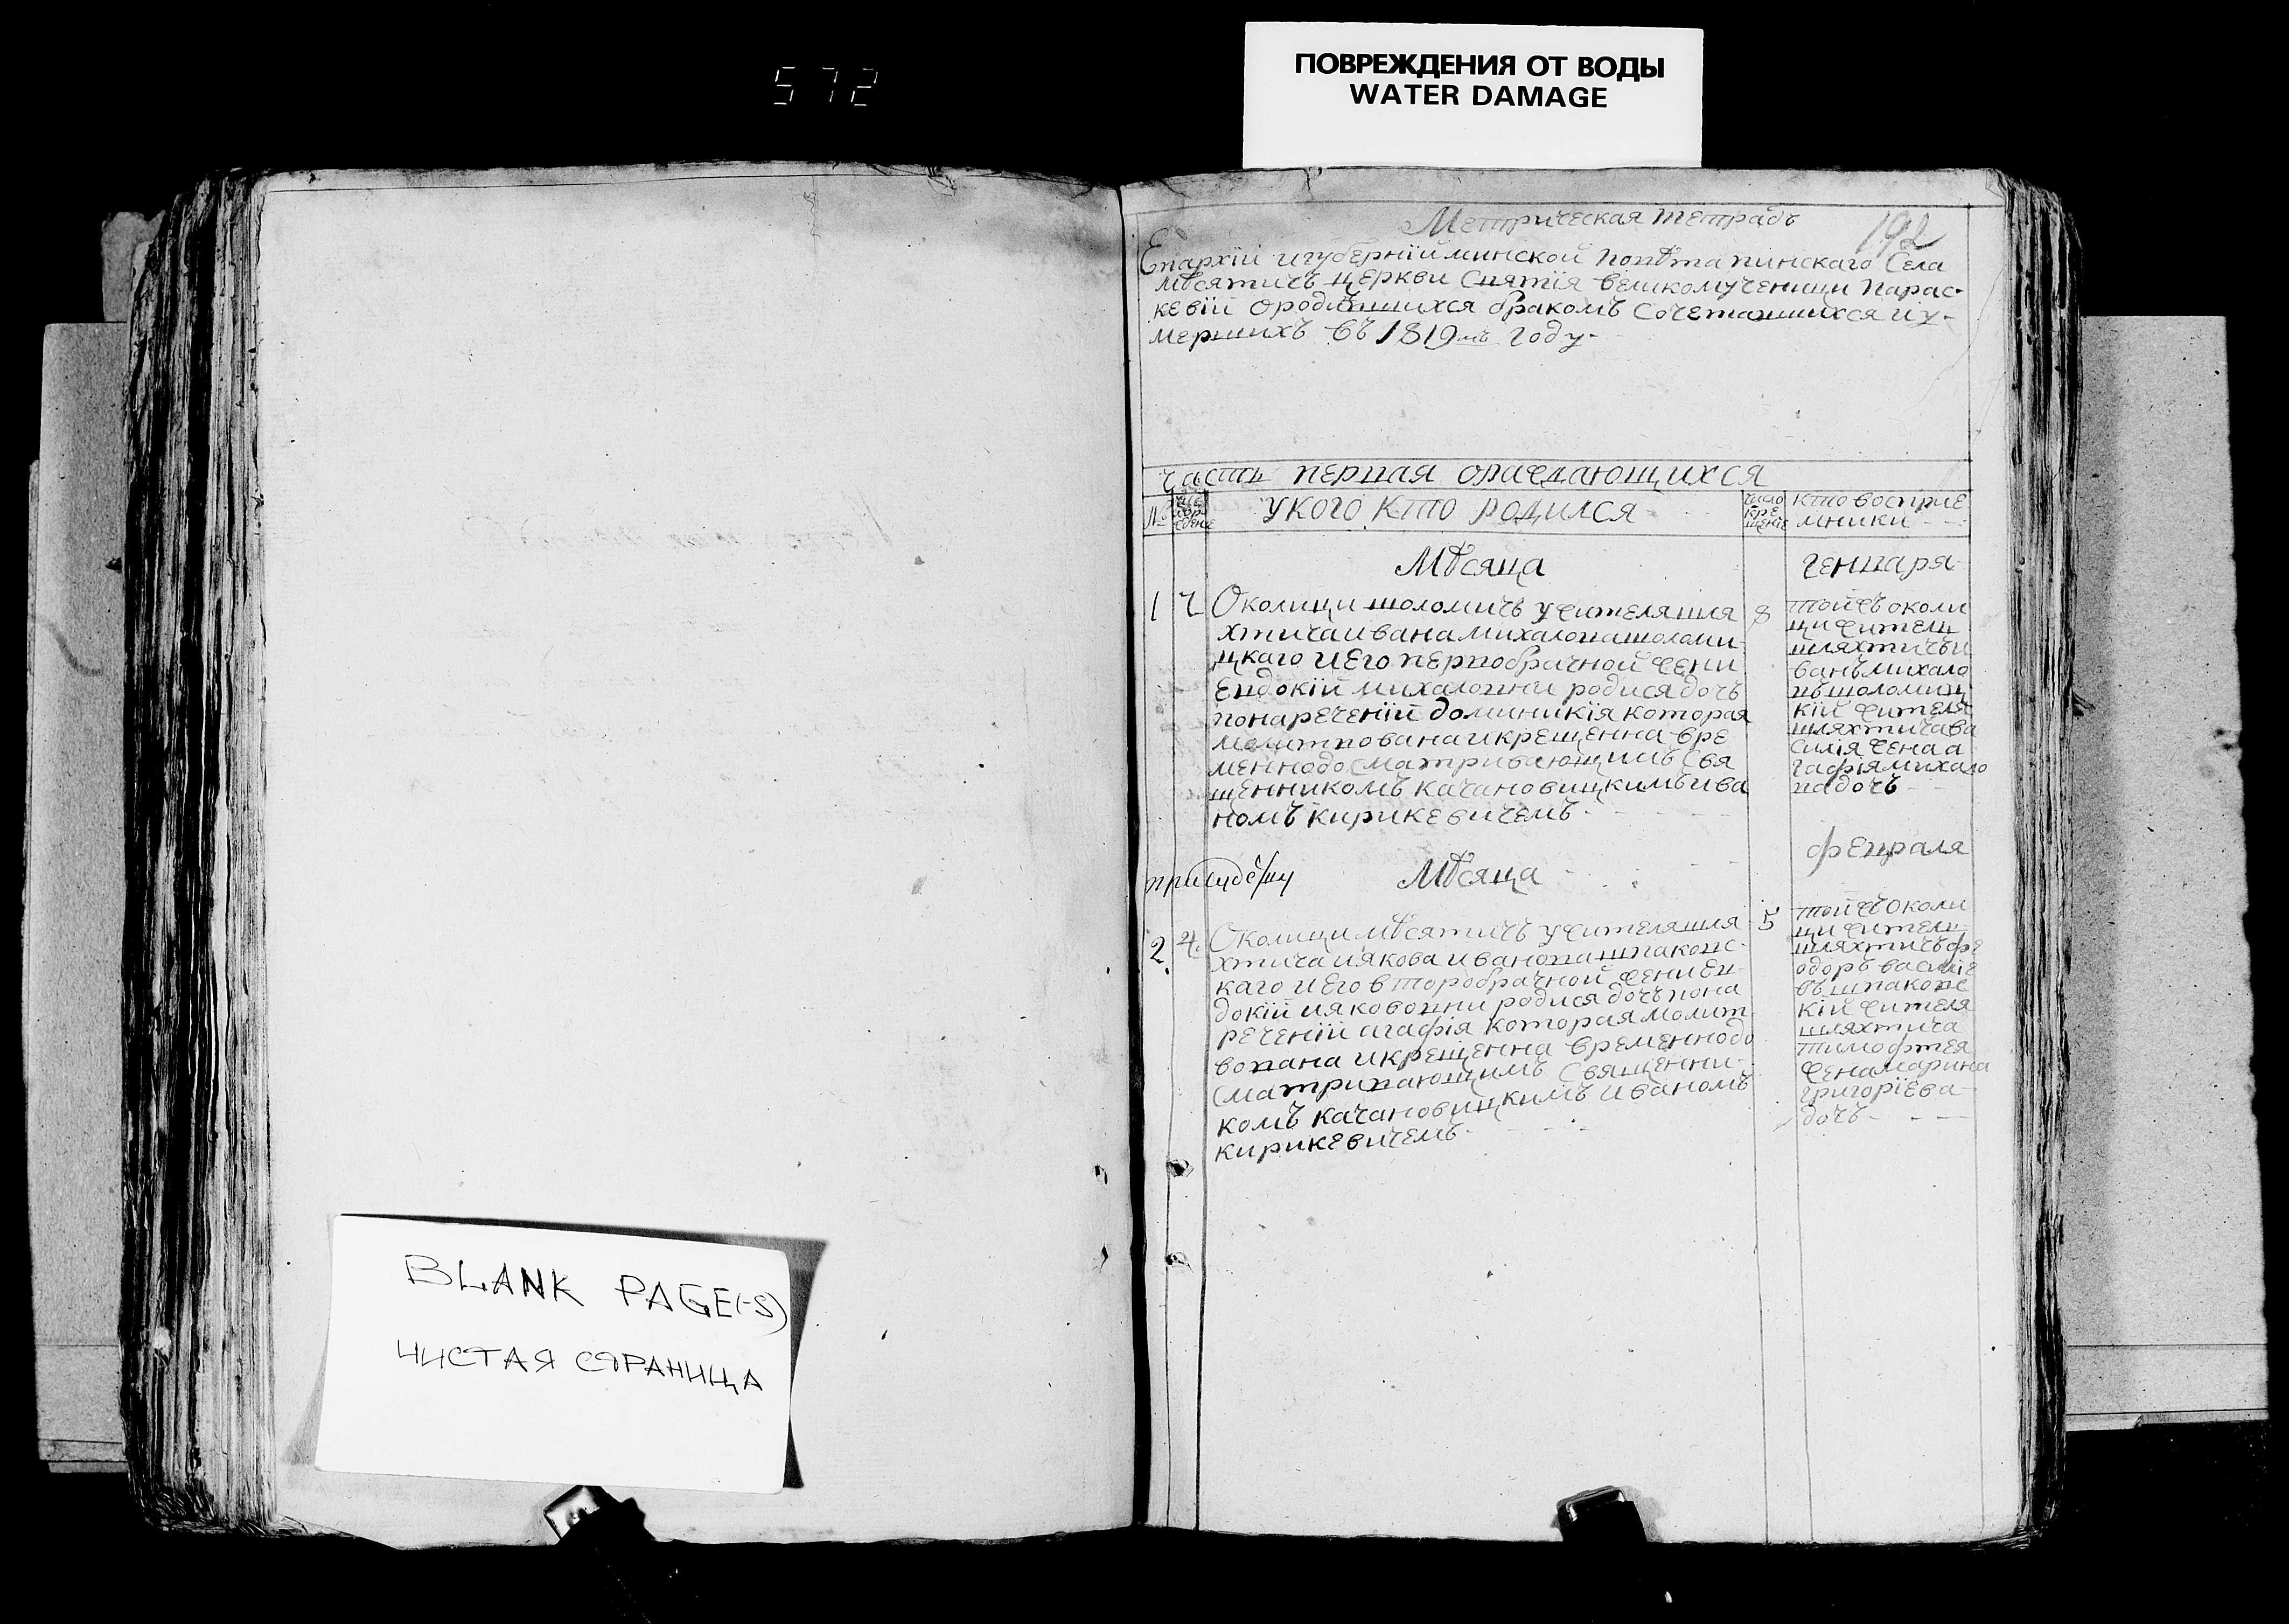 572
ПОВРЕЖДЕНИЯ ОТ ВОДЫ
WATER DAMAGE
BLANK PAGE(-S)
ЧИСТАЯ СТРАНИЦА
Метрическая тетрадь
192
Епархіи игуберніи минской повѣта пинскаго Села
мѣсятичъ церкви Святія великомученици Парас-
кевіи ородившихся бракомъ Сочетавшихся иу-
мершихъ въ 1819мъ году-
часть первая ораждающихся
№
число рождение
укого кто родился
число крещеніе
кто восприе
мники
Мѣсяца
генваря
1
8
Околици шоломичъ ужителя шля
хтича ивана михалова шоломи
цкаго иего первобрачной жени
Евдокіи михаловни родися дочъ
понареченіи доминикія которая
молитвована икрещенна вре
меннодосматривающимъ Свя
щенникомъ качановицкимъ ива
номъ кирикевичемъ
тойжъ околи
ци житель
шляхтичъ и
ванъ михало
въ шоломиц
кій жителя
шляхтича ва
силія жена а
гафія михало
ва дочъ
Мѣсяца
февраля
2
4
5
Околици мѣсятичъ ужителя шля
хтича иякова иванова шпаковс-
каго иего второбрачной жени ев
докіи ияковони родися дочъ пона
реченіи агафія которая молит
вована икрещенна временнодо
сматривающимъ Священни-
комъ качановицкимъ иваномъ
кирикевичемъ
тойжъ околи
ци житель
шляхтичъ фе
одоръ василіе
въ шпаковс
кій жителя
шляхтича
тимофтея
жена марина
григоріева
дочъ